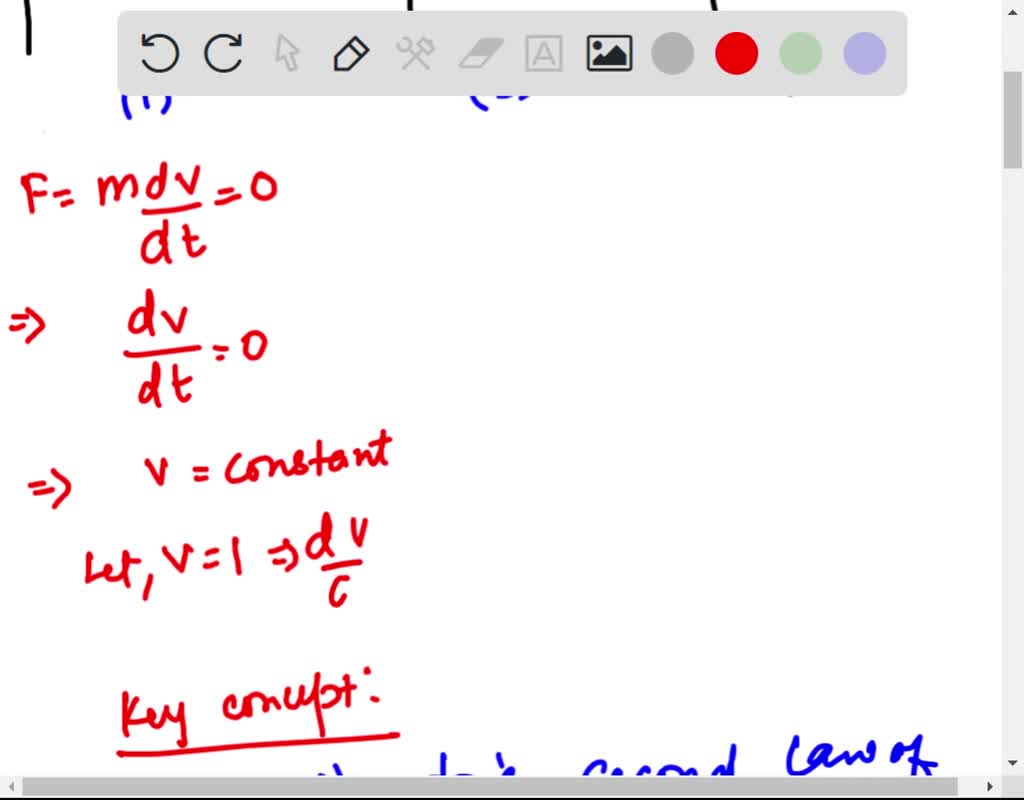 (1)
F = m dv/dt = 0
⇒ dv/dt = 0
⇒ v = constant
Let, v = 1 ⇒ dv/c
Key concept:
second Law of